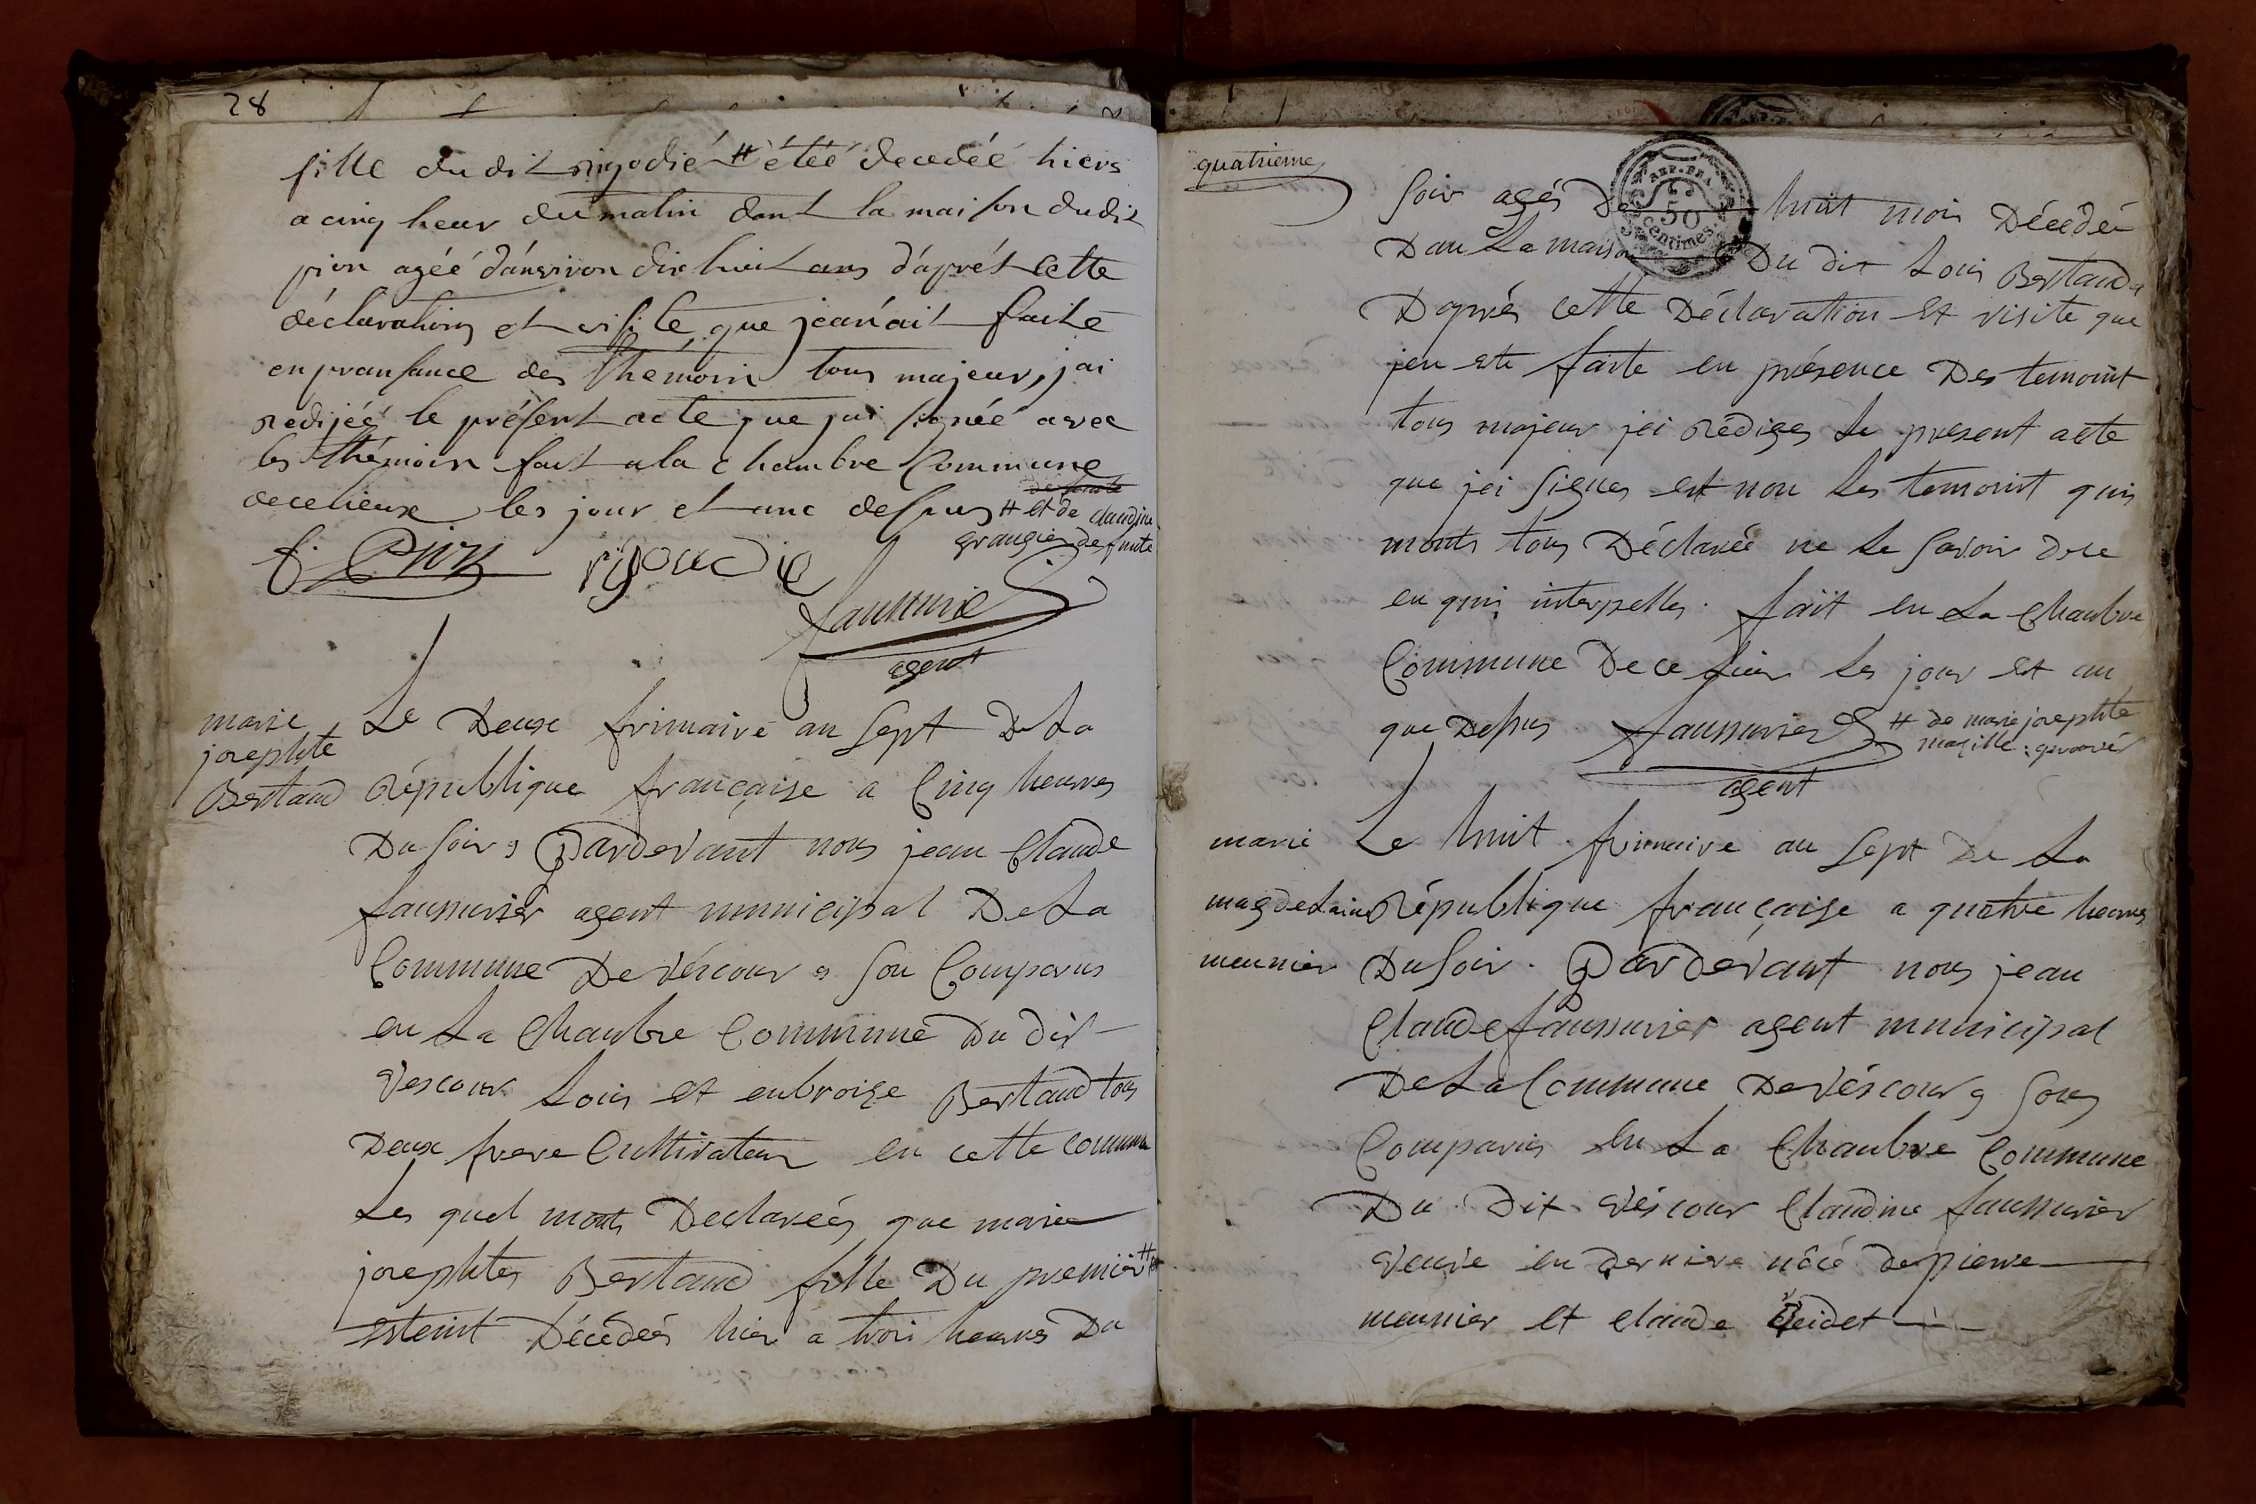 28
fille du dit rigodié # étéé decedéé hiers
a cinq heur du matin dant la maison du dit
pion agéé d'ansviron dix huit ans d'aprét cette
déclaration et visite que jeanait faite
en pransance des thémoin tous majeur, jai
redijéé le présent acte que jai signéé avec
les thémoin fait a la chambre Commune
de ce lieux les jour et anc desus # et de claudine
grangier defunte
f. Pion rigoudie
faussurier
agent
marie
josephte
Bertaud
Le Deux frimaire an Sept De La
République française a Cinq heures
Du Soir, Pardevant nous jean Claude
faussurier agent municipal De La
Commune De Véscour, son Comparus
en La Chanbre Commune Du dit
Vescour Louis et enbroise Bertaud tous
Deux frere Cultivateur en cette commune
Les quel monts Declareés que marie
josephtes Bertaud fille Du premier #
esteint Décédeés hier a trois heures Du
quatrieme
REP. FRA.
50
Centimes
Soir agés De huit mois Décédéé
Dan La maison Du dit Louis Bertaud
Daprés cette Déclaration et visite que
jen ete faite en présence Des temoint
tous majeur jei rédiges Le present acte
que jei Signes est non Les temoint quis
monts tous Déclareé ne Le Savoir de ce
en quis interpelles. fait en La Chanbre
Commune De ce Lieu Les jour et an
que Desus faussurier # de marie josephte
agent
marie
magdelaine
meunier
Le huit frimaire an Sept De La
République française a quatre heures
Du Soir. Pardevant nous jean
Claude faussurier agent municipal
De La Commune De Véscour, Sons
Comparus en La Chanbre Commune
Du Dit Véscour Claudine faussurier
Veuve en Derniere nôcé de pierre
meunier et claude